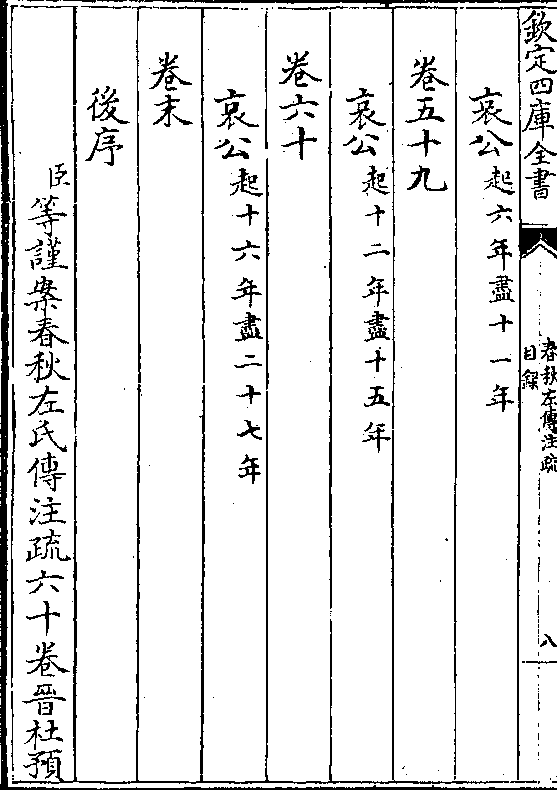 欽定四庫全書
春秋左傳注疏
目錄
八
哀公起六年盡十一年
卷五十九
哀公起十二年盡十五年
卷六十
哀公起十六年盡二十七年
卷末
後序
臣等謹案春秋左氏傳注疏六十卷晉杜預